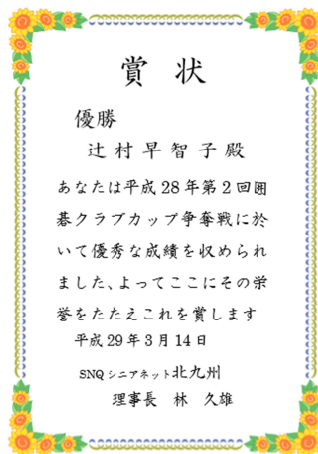 賞状
優勝
辻村早智子殿
あなたは平成28年第2回囲
碁クラブカップ争奪戦に於
いて優秀な成績を収められ
ました、よってここにその栄
誉をたたえこれを賞します
平成29年3月14日
SNQシニアネット北九州
理事長 林 久雄